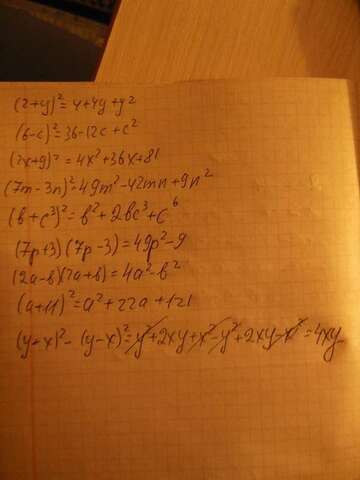 (2+y)²=4+4y+y²
(6-c)²=36-12c+c²
(2x+9)²=4x²+36x+81
(7m-3n)²=49m²-42mn+9n²
(b+c³)²=b²+2bc³+c⁶
(7p+3)(7p-3)=49p²-9
(2a-b)(2a+b)=4a²-b²
(a+11)²=a²+22a+121
(y+x)²-(y-x)²=y²+2xy+x²-y²+2xy-x²=4xy